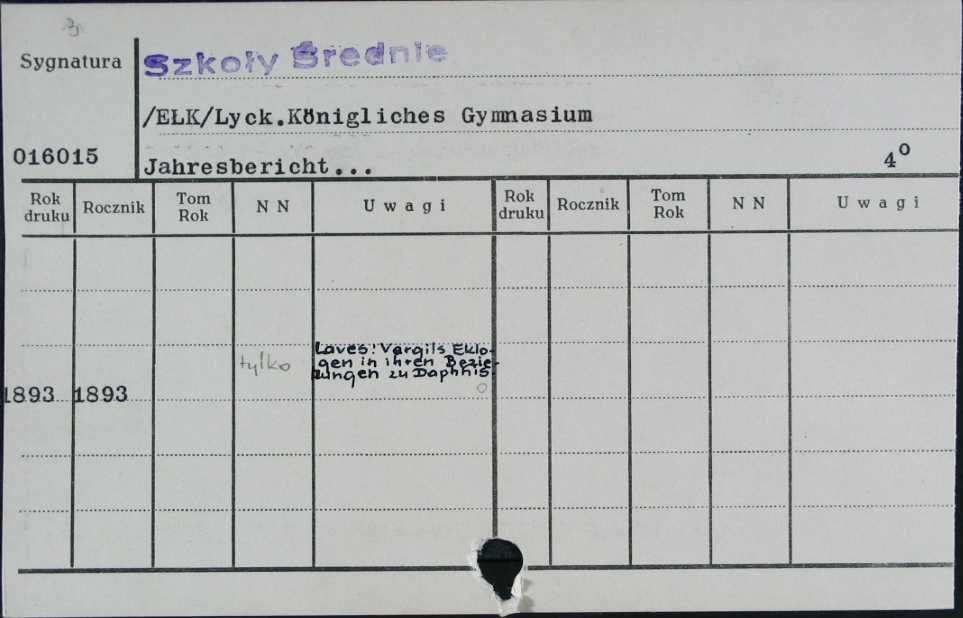 Sygnatura
Szkoły Średnie
/EŁK/Lyck.Königliches Gymnasium
016015
Jahresbericht...
4⁰
Rok druku
Rocznik
Tom Rok
N N
U w a g i
Rok druku
Rocznik
Tom Rok
N N
U w a g i
1893
1893
tylko
Laves: Vergils Eklo-
gen in ihren Bezie-
zungen zu Daphnis.